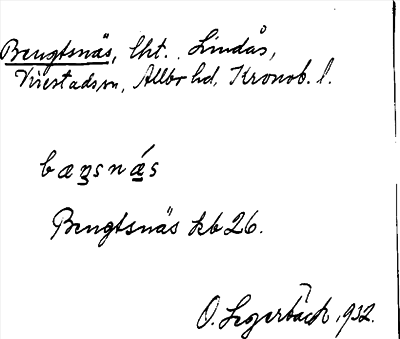 Bengtsnäs, lht. Lindås,
Virestads sn, Allbo hd, Kronob. l.
bæŋsnǽs
Bengtsnäs kb 26.
O. Segerbäck, 1932.